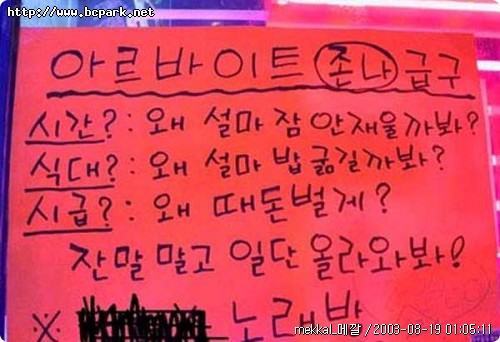 http://www.bcpark.net/
아르바이트 존나 급구
시간?: 왜 설마 잠 안재울까봐?
식대?: 왜 설마 밥 굶길까봐?
시급?: 왜 떼돈벌게?
잔말 말고 일단 올라와봐!
※ 노래방
mekkaL메깔 / 2003-08-19 01:05:11